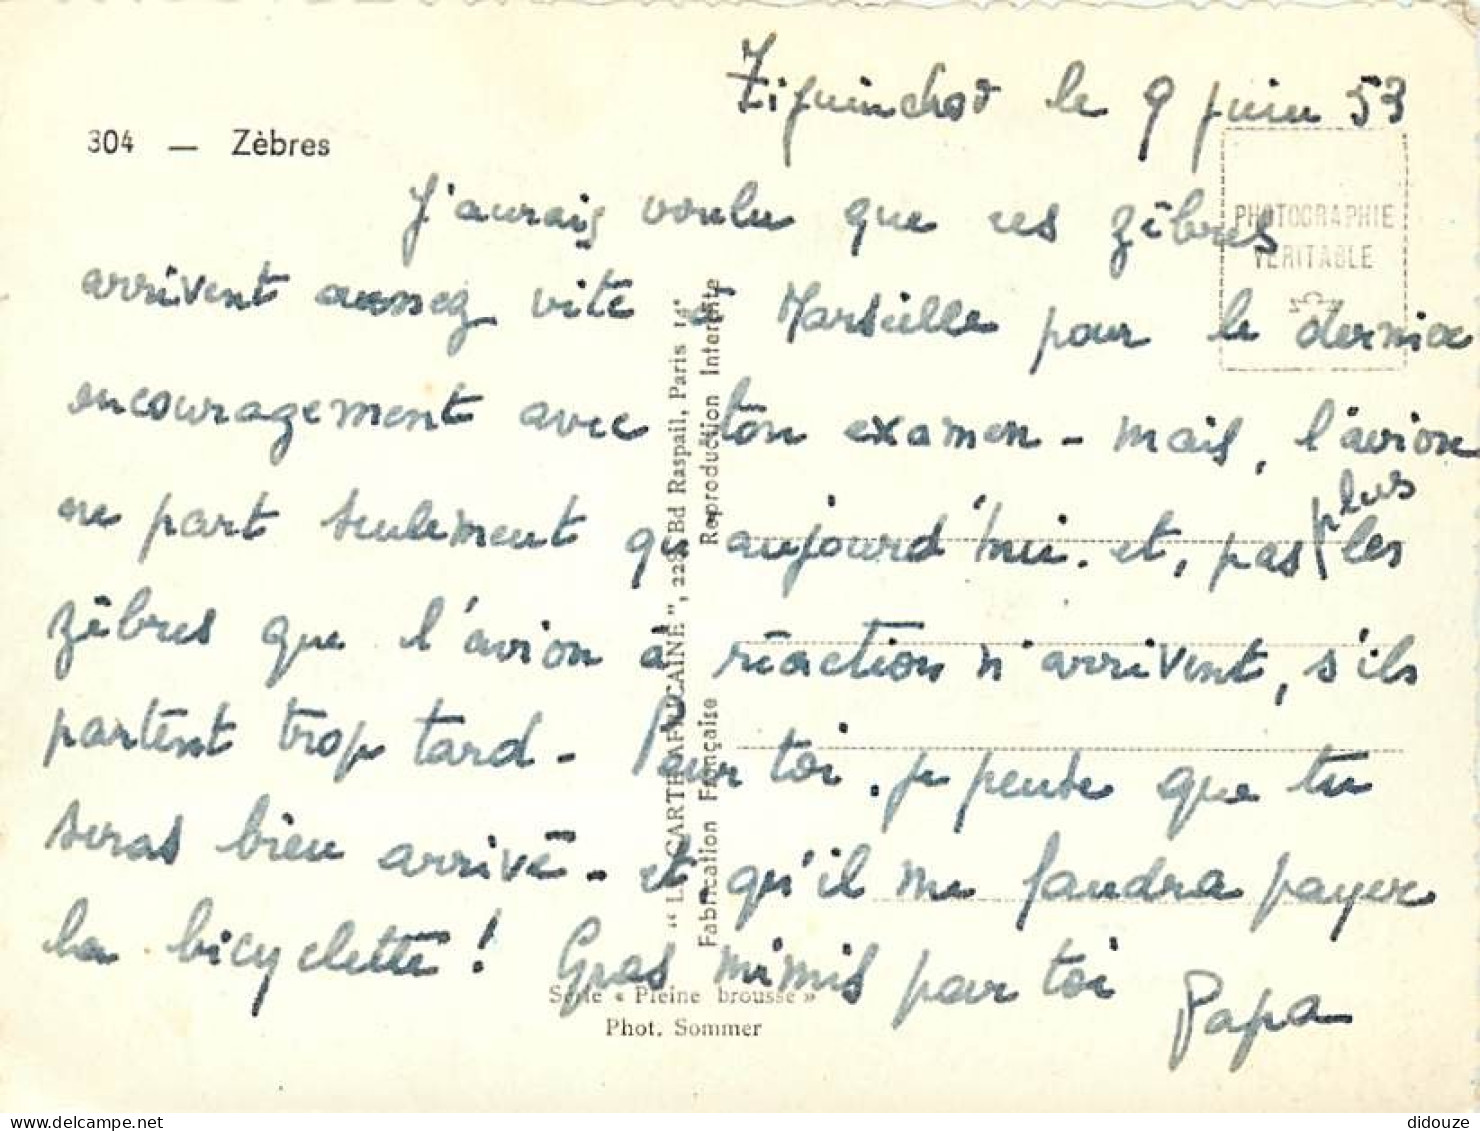 Ziguinchor le 9 juin 53
304 — Zèbres
PHOTOGRAPHIE
VERITABLE
J'aurais voulu que ces zèbres
arrivent aussez vite à Marseille pour le dernier
encouragement avec ton examen - mais, l'avion
ne part seulement qu'aujourd'hui. et, pas plus les
zèbres que l'avion à réaction n'arrivent, s'ils
partent trop tard - Pour toi. je pense que tu
seras bien arrivé - et, qu'il me faudra payer
la bicyclette ! Gros mimis pour toi
Papa
" LA CARTE AFRICAINE ", 229 Bd Raspail, Paris 14e
Fabrication Française Reproduction Interdite
Série « Pleine brousse »
Phot. Sommer
delcampe.net
didouze